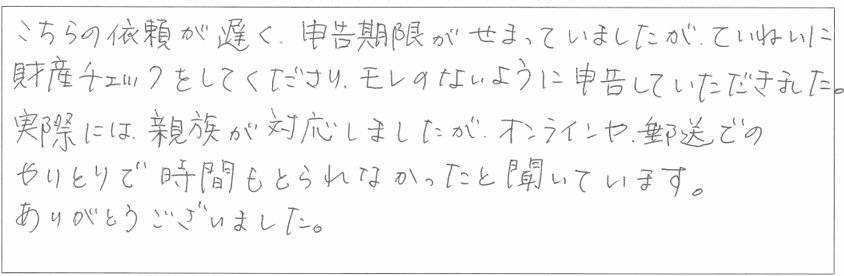 こちらの依頼が遅く、申告期限がせまっていましたが、ていねいに
財産チェックをしてくださり、モレのないように申告していただきました。
実際には、親族が対応しましたが、オンラインや、郵送での
やりとりで時間もとられなかったと聞いています。
ありがとうございました。